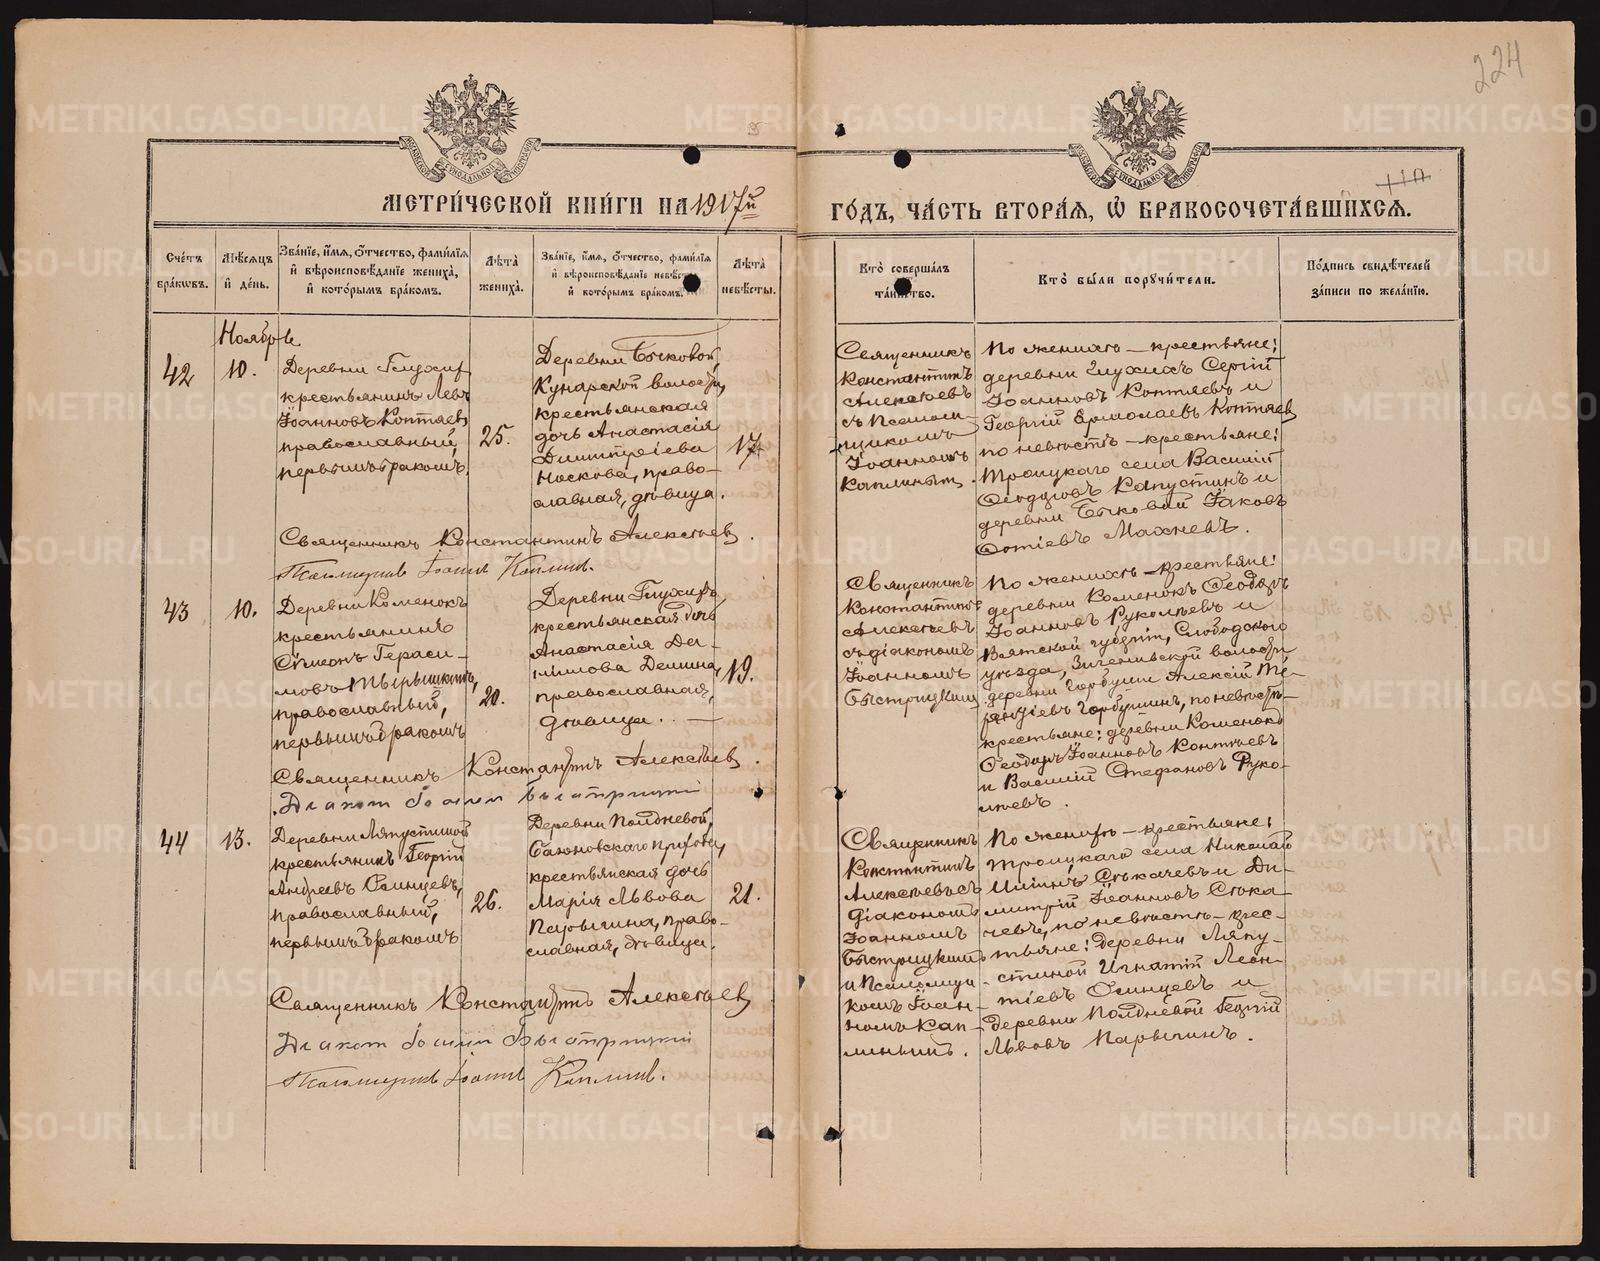 224
МЕТРИЧЕСКОЙ КНИГИ НА 1917й
ГОДЪ, ЧАСТЬ ВТОРАЯ, Ѿ БРАКОСОЧЕТАВШИХСЯ.
Счетъ браковъ.
Мѣсяцъ и день.
Званіе, имя, ѻтчество, фамилія и вѣроисповѣданіе жениха, и которымъ бракомъ.
Лѣта жениха.
Званіе, имя, ѻтчество, фамилія и вѣроисповѣданіе невѣсты, и которымъ бракомъ.
Лѣта невѣсты.
Кто совершалъ таинство.
Кто были поручители.
Подпись свидѣтелей записи по желанію.
Ноябрь
42
10.
Деревни Глухих
крестьянинъ Левъ
Іоанновъ Коптяев
православный,
первымъ бракомъ.
25.
Деревни Бычковой,
Кунарской волости,
крестьянская
дочь Анастасія
Димитріева
Носкова, право-
славная, дѣвица.
17
Священникъ
Константинъ
Алексѣевъ
съ Псалом-
щикомъ
Іоанномъ
Каплинымъ.
По женихѣ – крестьяне:
деревни Глухихъ Сергій
Іоанновъ Коптяевъ и
Георгій Ермолаевъ Коптяев
по невѣстѣ – крестьяне:
Троицкаго села Василій
Ѳеодуловъ Капустинъ и
деревни Бычковой Іаковъ
Фотіевъ Махневъ.
Священникъ Константинъ Алексѣев.
Псаломщикъ Іоаннъ Каплинъ.
43
10.
Деревни Коменокъ
крестьянинъ
Сѵмеонъ Гераси-
мовъ Тырышкинъ,
православный,
первымъ бракомъ
20.
Деревни Глухихъ
крестьянская дочь
Анастасія Да-
нилова Демина,
православная,
дѣвица. —
19.
Священникъ
Константинъ
Алексѣевъ
съ діакономъ
Іоанномъ
Быстрицким
По женихѣ – крестьяне:
деревни Коменокъ Ѳеодоръ
Іоанновъ Руколѣевъ и
Вятской губерніи, Слободского
уѣзда, волости
деревни Горбуши Алексій
Горбушинъ, по невѣстѣ –
крестьяне: деревни Коменокъ
Ѳеодоръ Іоанновъ Контѣевъ
и Василій Стефановъ Руко-
лѣевъ.
Священникъ Константинъ Алексѣев.
Діаконъ Іоаннъ Быстрицкій
44
13.
Деревни Ляпустиной
крестьянинъ Георгій
Андреевъ Осинцевъ,
православный,
первымъ бракомъ
26.
Деревни Полдневой,
прихода,
крестьянская дочь
Марія Львова
Парыгина, право-
славная, дѣвица.
21.
Священникъ
Константинъ
Алексѣевъ съ
діакономъ
Іоанномъ
Быстрицкимъ
и Псаломщи-
комъ Іоан-
номъ Кап-
линымъ.
По женихѣ – крестьяне:
Троицкаго села Николай
Ильинъ Стокачевъ и Ди-
митрій Іоанновъ Стока-
чевъ, по невѣстѣ – крес-
тьяне: деревни Ляпу-
стиной Игнатій Леон-
тіевъ Осинцевъ и
деревни Полдневой Георгій
Львовъ Парыгинъ.
Священникъ Константинъ Алексѣев
Діаконъ Іоаннъ Быстрицкій
Псаломщикъ Іоаннъ Каплинъ.
METRIKI.GASO-URAL.RU